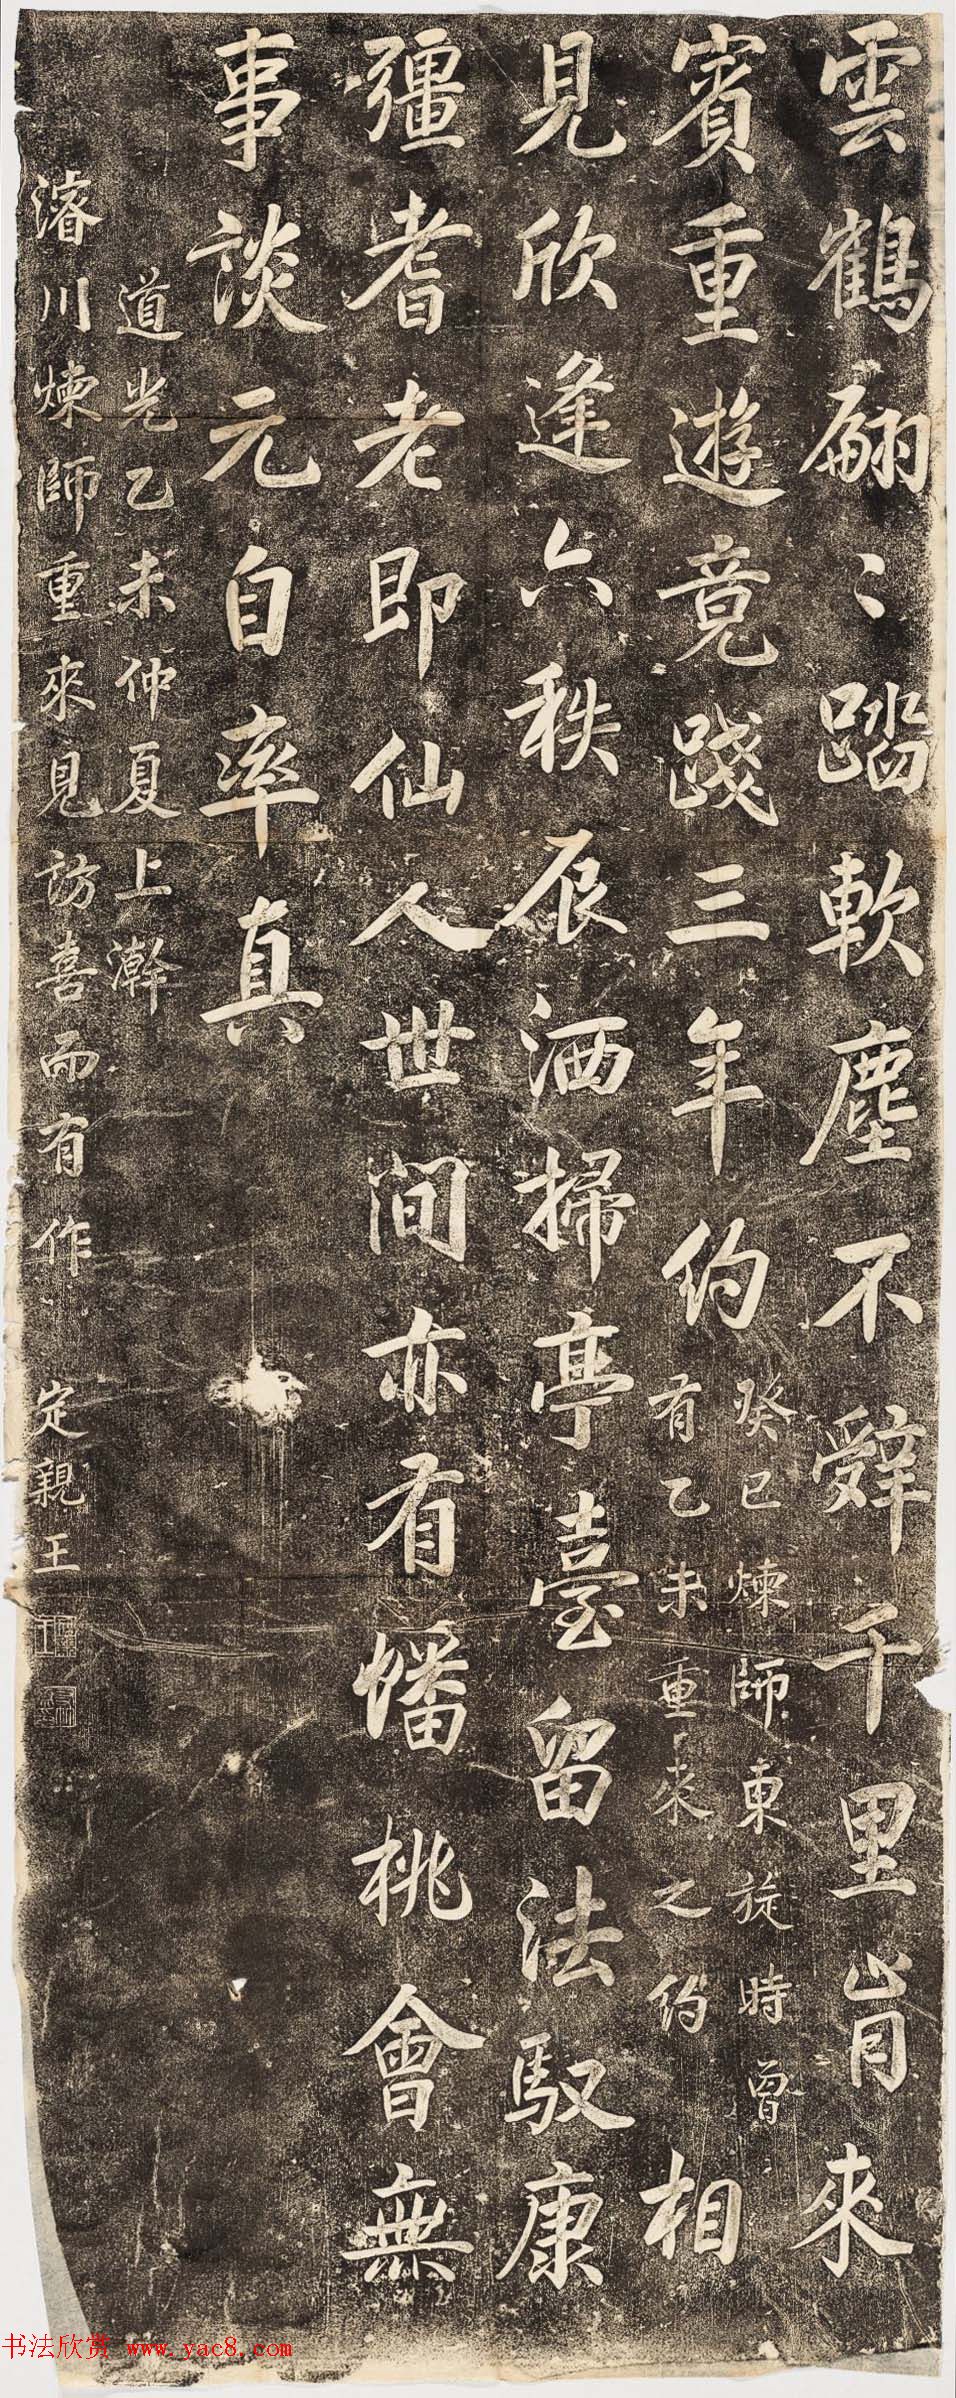 雲鶴翩〻踏軟塵不辤千里肯來
賓重遊竟踐三年約
癸巳煉師東旋時曾
有乙未重來之約
相
見欣逢六秩辰洒掃亭臺留法馭康
彊耆老即仙人世間亦有蟠桃會無
事談元自率真
道光乙未仲夏上澣
濬川煉師重來見訪喜而有作
定親王
书法欣赏 www.yac8.com